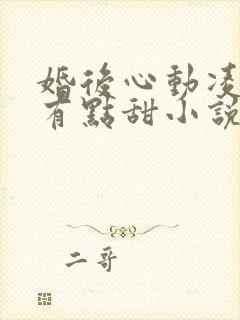 婚後心動凌
有點甜小說
二哥